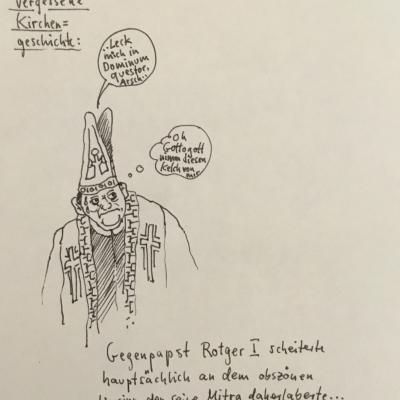 Vergessene
Kirchen=
geschichte:
„Leck
mich in
Dominum
questor,
Arsch..
Oh
Gottogott
nimm diesen
Kelch von
mir
Gegenpapst Rotger I scheiterte
hauptsächlich an dem obszönen
Unsinn den seine Mitra daherlaberte...